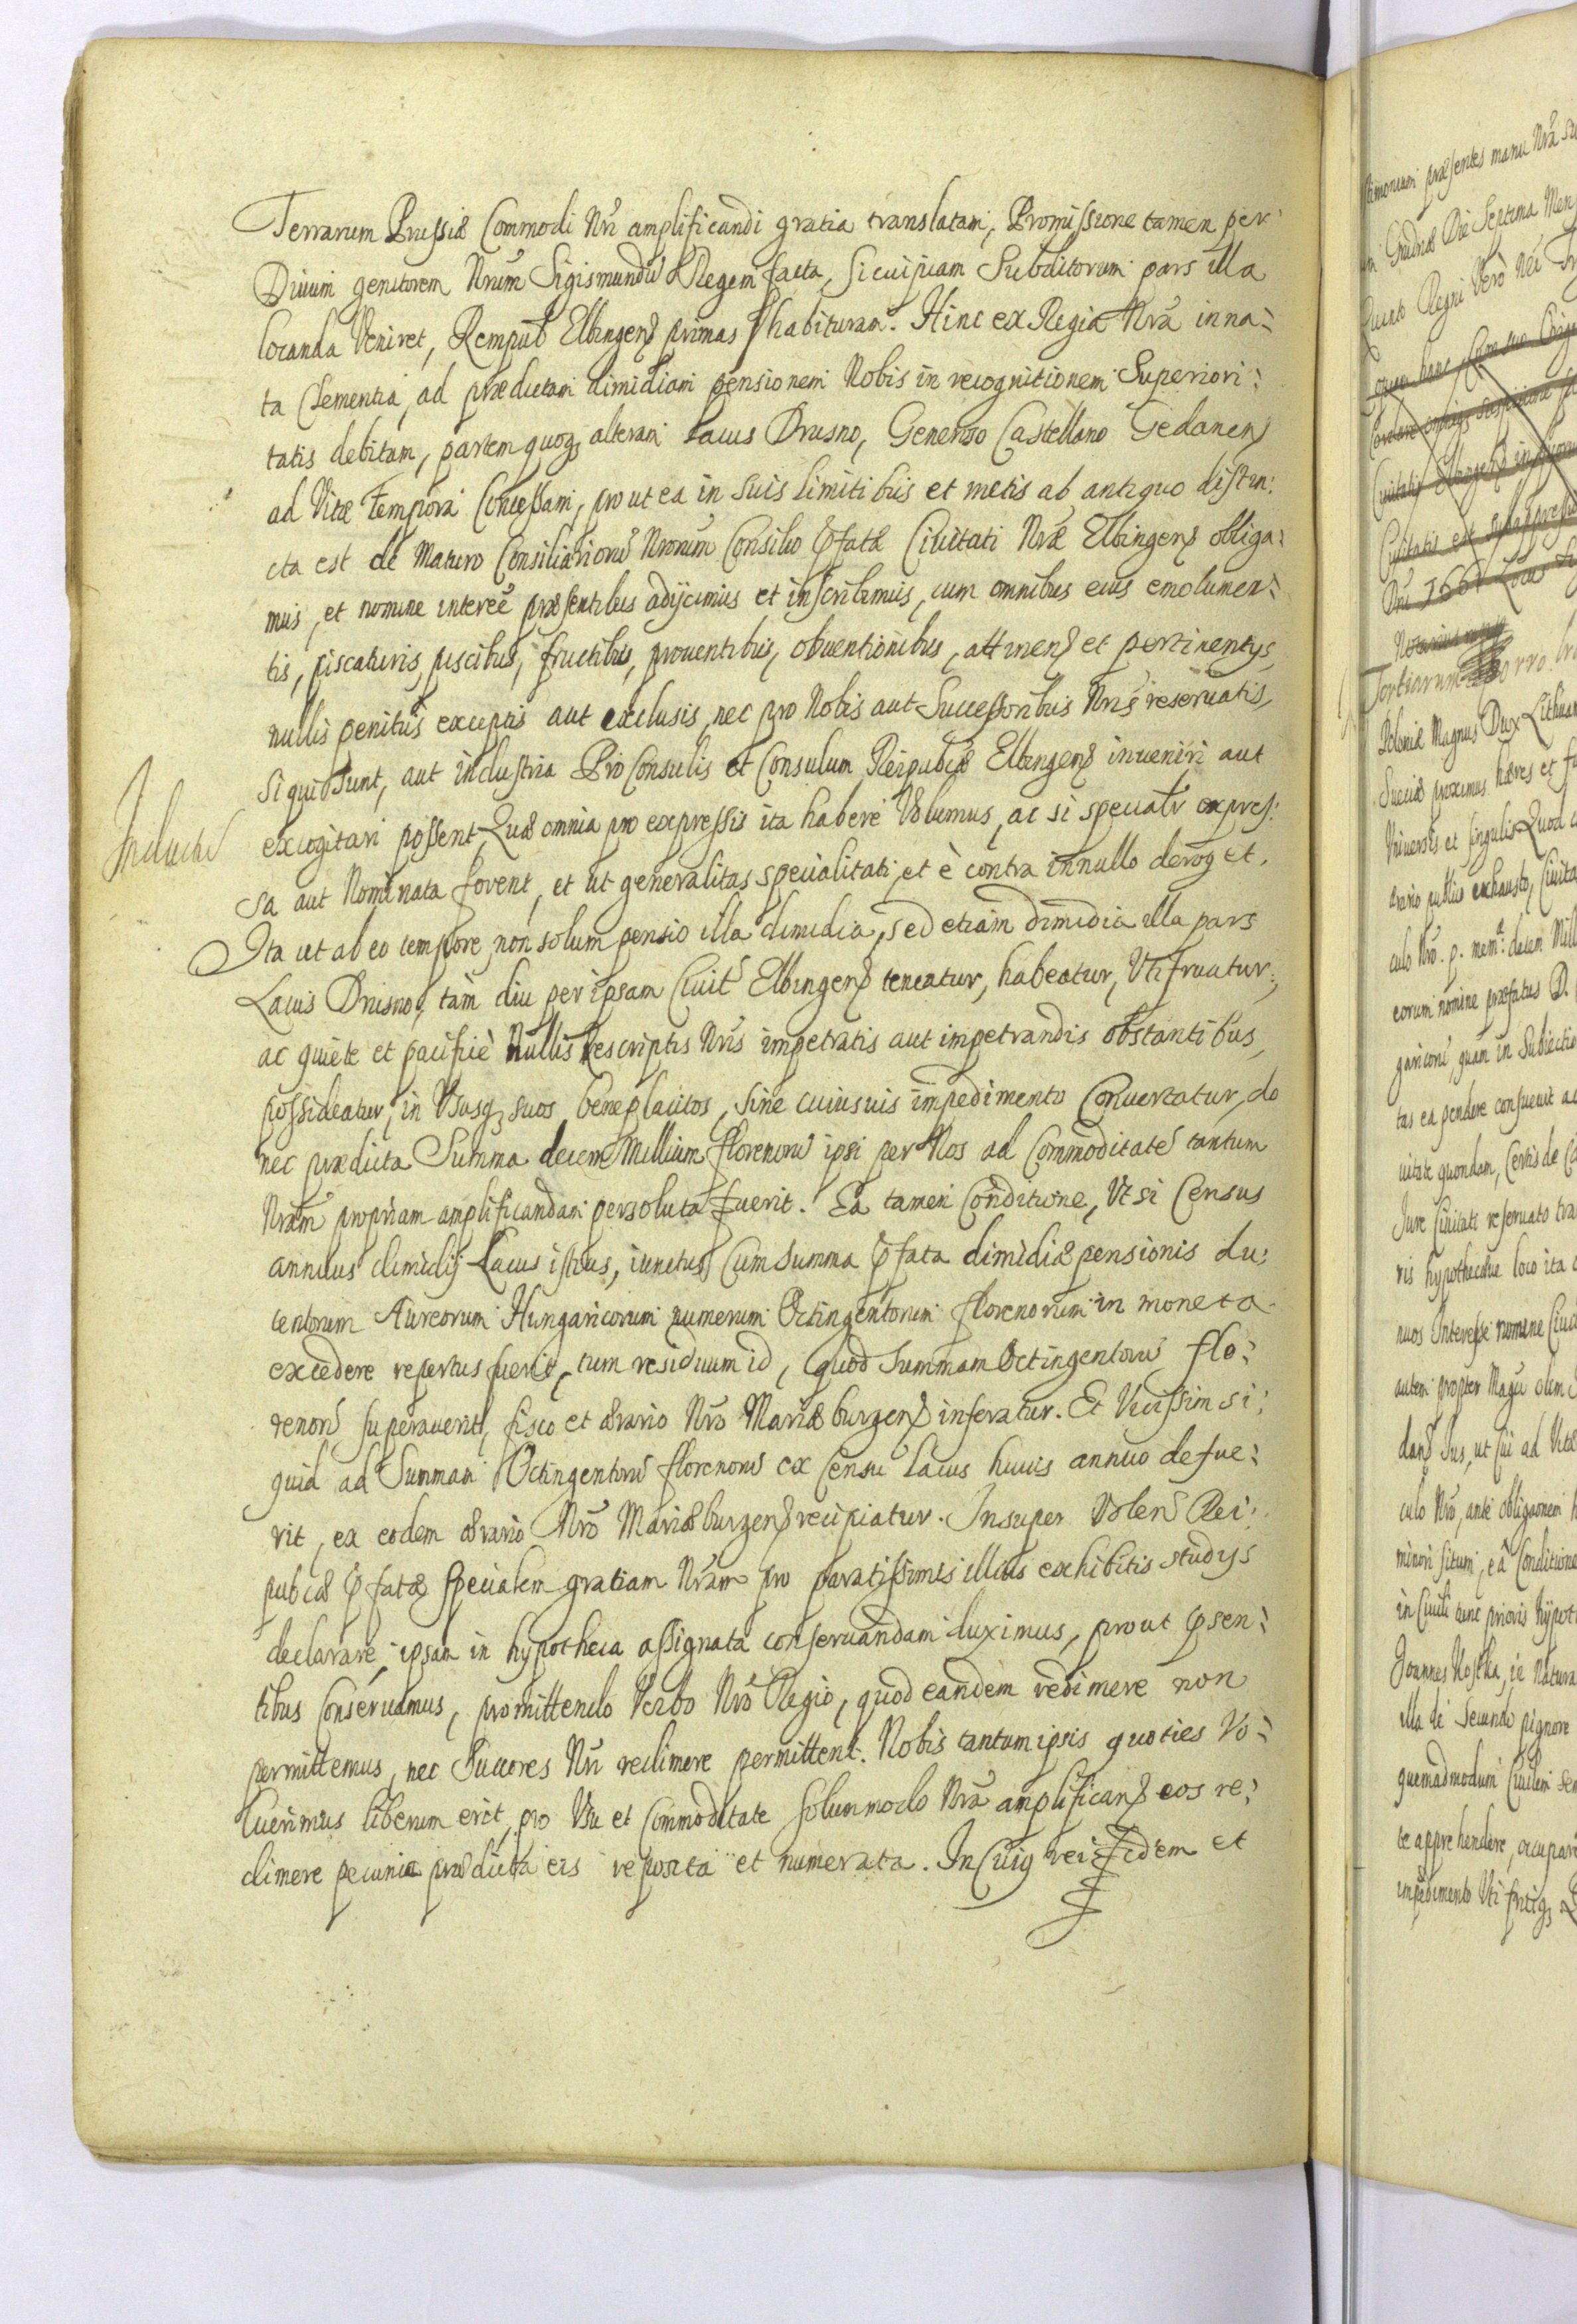 Terrarum Prussiæ Commodi Nri amplificandi gratia translatam, Promissione tamen per
Divum genitorem Nrum Sigismundũ Regem facta, si cuipiam Subditorum pars illa
locanda Veniret, Rempub Elbingens primas habituram. Hinc ex Regia Nra inna:
ta Clementia, ad prædictam dimidiam pensionem Nobis in recognitionem Superiori:
tatis debitam, partem quoq alteram Lacus Drusno, Generoso Castellano Gedanens
ad Vitæ Tempora Concessam, prout ea in suis limitibus et metis ab antiquo distin:
cta est de Maturo Consiliariorũ Nrorum Consilio pfatæ Civitati Nræ Elbingens obliga:
mus, et nomine interee præsentibus adijcimus et inscribimus, cum omnibus eius emolumen:
tis, piscaturis, piscibus, fructibus, proventibus, obventionibus, attinens et pertinentijs,
nullis penitus exceptis aut exclusis, nec pro Nobis aut Successoribus Nris reservatis,
si qui sunt, aut industria Pro Consulis et Consulum Reipubcæ Elbingens inveniri aut
excogitari possent, Quæ omnia pro expressis ita habere Volumus, ac si specialr expres:
sa aut Nominata forent, et ut generalitas specialitati, et è contra in nullo deroget.
Ita ut ab eo tempore, non solum pensio illa dimidia, sed etiam dimidia illa pars
Lacus Drusno, tam diu per ipsam Civit Elbingens teneatur, habeatur, Utifruatur,
ac quiete et pacificè Nullis Rescriptis Nris impetratis aut impetrandis obstantibus,
possideatur, in Ususq suos beneplacitos, sine cuiusvis impedimento Convertatur, do
nec prædicta Summa decem Millium florenorũ ipsi per Nos ad Commoditatẽ tantum
Nram propriam amplificandam persoluta fuerit. Ea tamen Conditione, Ut si Census
annuus dimidij Lacus istius, iunctus Cum Summa pfata dimidiæ pensionis du:
centorum Aureorum Hungaricorum numerum Octingentorum florenorum in moneta
excedere repertus fuerit, tum residuum id, quod Summam Octingentorũ flo:
renorũ superaverit, fisco et ærario Nro Mariæburgens inferatur. Et Vicissim si:
quid ad Summam Octingentorũ florenorũ ex Censu Lacus huius annuo defue:
rit, ex eodem ærario Nro Mariæburgens recipiatur. Insuper Volens Rei:
pubcæ pfatæ specialem gratiam Nram pro paratissimis illius exhibitis studijs
declarare, ipsam in hypotheca assignata conservandam duximus, prout psen:
tibus Conservamus, promittendo Verbo Nro Regio, quod eandem redimere non
permittemus, nec Succores Nri redimere permittent. Nobis tantum ipsis quoties Vo:
luerimus liberum erit, pro Usu et Commoditate solummodo Nra amplificans eos re:
dimere pecunia prædicta eis reposita et numerata. In Cuiq rei fidem et
Poloniæ Magnus Dux Lithuan
Sueciæ proximus hæres et fu
Universis et singulis Quod
ærario publico exhausto, Civita
culo Nro. p. mem: decem Mill
eorum nomine præfatus D.
garicorũ, quam in Subiectio
tas ea pendere consuevit
Jure Civitati reservato tra
ris hypothecæque loco ita
nuos Interesse nomine Civi
autem propter Magcũ olim
dans Jus, ut sui ad Vitæ
culo Nro, ante obligaonem
minori situm, eâ Conditione
in Civili tunc prioris hypot
Joannes Kostka, ie Natura
illa de Secundo pignore
quemadmodum Civilem
te apprehendere, occupari
impedimento Uti fruiq